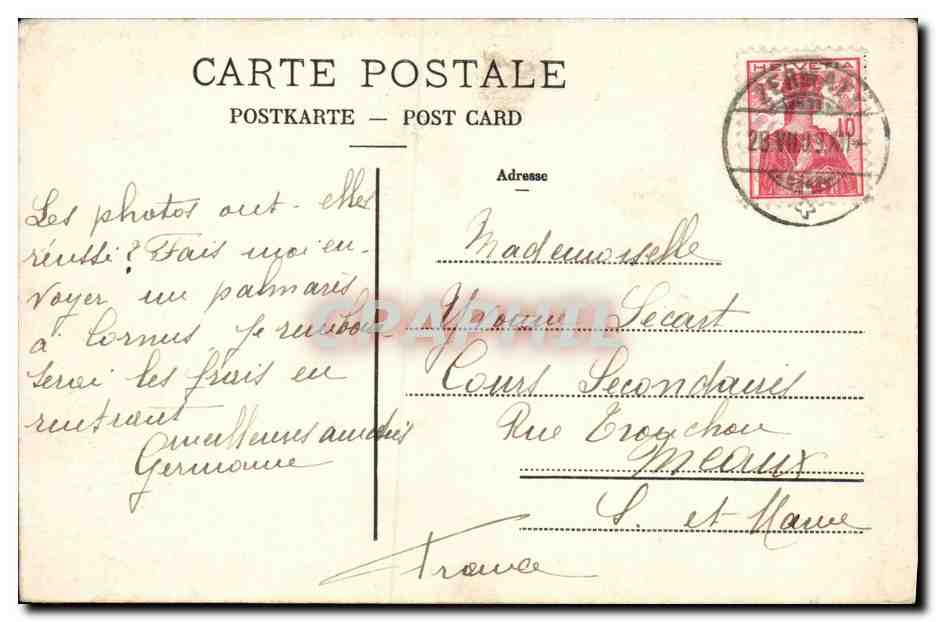 CARTE POSTALE
POSTKARTE — POST CARD
HELVETIA
10
ZERMATT
28.VII.09.XII
Adresse
Les photos ont-elles
réussi? Fais moi en-
voyer un palmarès
à Cornus. Je rembou-
serai les frais en
rentrant
meilleures amitiés
Germaine
Mademoiselle
Yvonne Sécart
Cours Secondaires
Rue Tronchon
MEAUX
S. et Marne
France
CPAPHIL